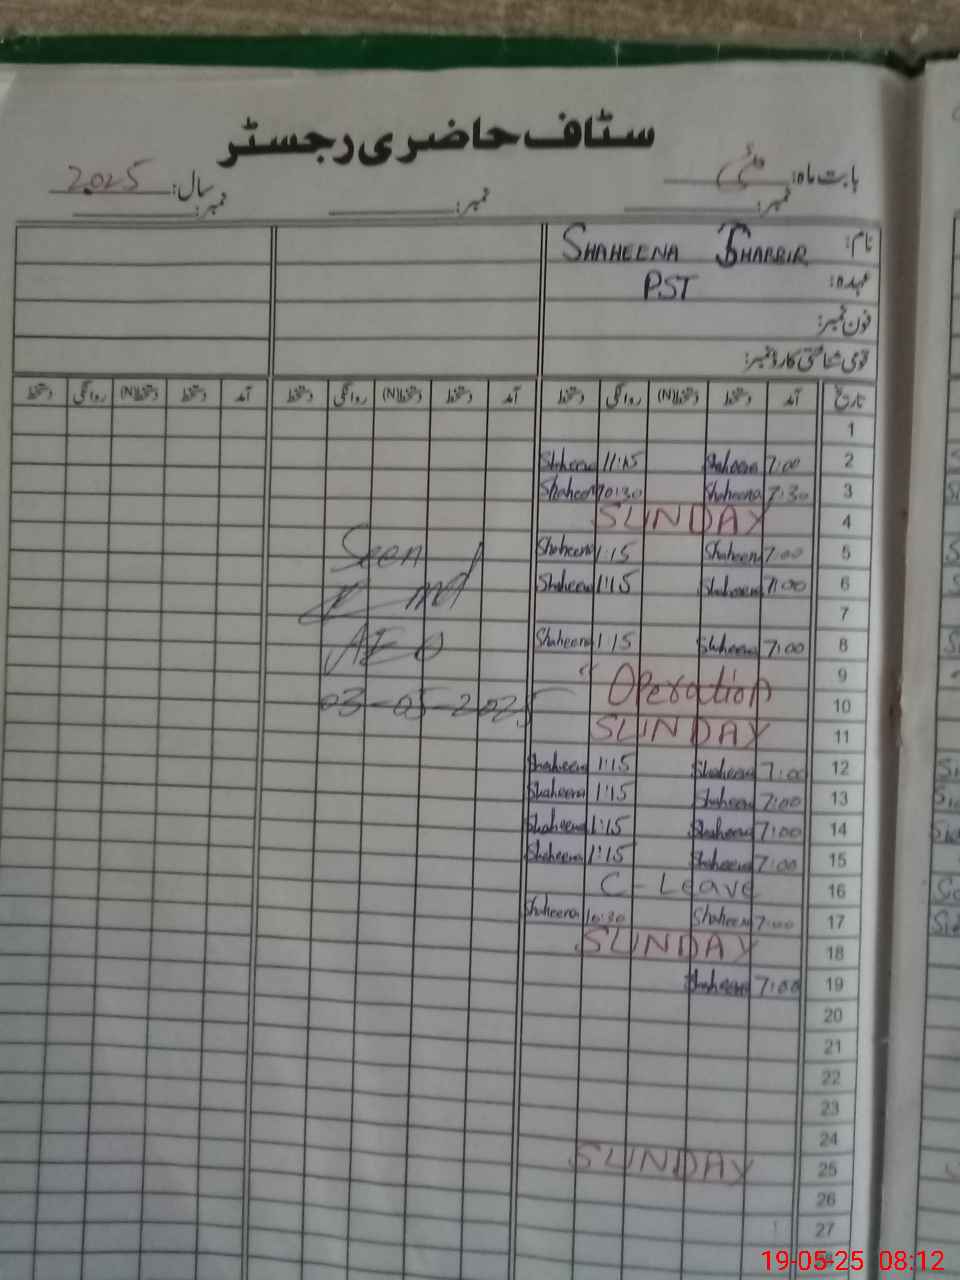 سٹاف حاضری رجسٹر
بابت ماہ: مئی سال: 2025
نمبر: نمبر: نمبر:
نام: SHAHEENA SHABBIR
عہدہ: PST
فون نمبر:
قومی شناختی کارڈ نمبر:
تاریخ آمد دستخط دستخط(N) روانگی دستخط آمد دستخط دستخط(N) روانگی دستخط آمد دستخط دستخط(N) روانگی دستخط
1
2 7:00 Shaheena 11:15 Shaheena
3 7:30 Shaheena 10:30 Shaheen
4 SUNDAY
5 7:00 Shaheen 1:15 Shaheena
6 7:00 Shaheen 1:15 Shaheena
7
8 7:00 Shaheena 1:15 Shaheena
9 " Operation
10
11 SUNDAY
12 7:00 Shaheena 1:15 Shaheena
13 7:00 Shaheen 1:15 Shaheena
14 7:00 Shaheena 1:15 Shaheena
15 7:00 Shaheena 1:15 Shaheena
16 C-Leave
17 7:00 Shaheen 10:30 Shaheera
18 SUNDAY
19 7:00 Shaheena
20
21
22
23
24
25 SUNDAY
26
27
Seen
AEO
03-05-2025
19-05-25 08:12